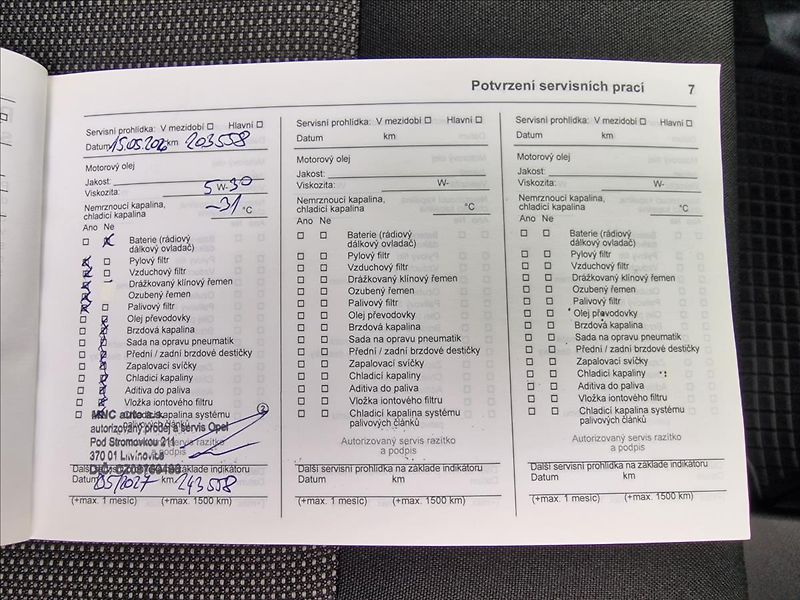 Potvrzení servisních prací 7
Servisní prohlídka: V mezidobí Hlavní
Datum 15.05.2026 km 203558
Motorový olej
Jakost:
Viskozita: 5 W-30
Nemrznoucí kapalina,
chladicí kapalina -31 °C
Ano Ne
Baterie (rádiový
dálkový ovladač)
Pylový filtr
Vzduchový filtr
Drážkovaný klínový řemen
Ozubený řemen
Palivový filtr
Olej převodovky
Brzdová kapalina
Sada na opravu pneumatik
Přední / zadní brzdové destičky
Zapalovací svíčky
Chladicí kapaliny
Aditiva do paliva
Vložka iontového filtru
Chladicí kapalina systému
palivových článků
2
auto a.s.
autorizovaný prodej a servis Opel
Pod Stromovkou 211
370 01 Litvínovice
Další servisní prohlídka na základe indikátoru
Datum 05/2027 km 243558
(+max. 1 mesíc) (+max. 1500 km)
Servisní prohlídka: V mezidobí Hlavní
Datum km
Motorový olej
Jakost:
Viskozita: W-
Nemrznoucí kapalina,
chladicí kapalina °C
Ano Ne
Baterie (rádiový
dálkový ovladač)
Pylový filtr
Vzduchový filtr
Drážkovaný klínový řemen
Ozubený řemen
Palivový filtr
Olej převodovky
Brzdová kapalina
Sada na opravu pneumatik
Přední / zadní brzdové destičky
Zapalovací svíčky
Chladicí kapaliny
Aditiva do paliva
Vložka iontového filtru
Chladicí kapalina systému
palivových článků
Autorizovaný servis razítko
a podpis
Další servisní prohlídka na základe indikátoru
Datum km
(+max. 1 mesíc) (+max. 1500 km)
Servisní prohlídka: V mezidobí Hlavní
Datum km
Motorový olej
Jakost:
Viskozita: W-
Nemrznoucí kapalina,
chladicí kapalina °C
Ano Ne
Baterie (rádiový
dálkový ovladač)
Pylový filtr
Vzduchový filtr
Drážkovaný klínový řemen
Ozubený řemen
Palivový filtr
Olej převodovky
Brzdová kapalina
Sada na opravu pneumatik
Přední / zadní brzdové destičky
Zapalovací svíčky
Chladicí kapaliny
Aditiva do paliva
Vložka iontového filtru
Chladicí kapalina systému
palivových článků
Autorizovaný servis razítko
a podpis
Další servisní prohlídka na základe indikátoru
Datum km
(+max. 1 mesíc) (+max. 1500 km)